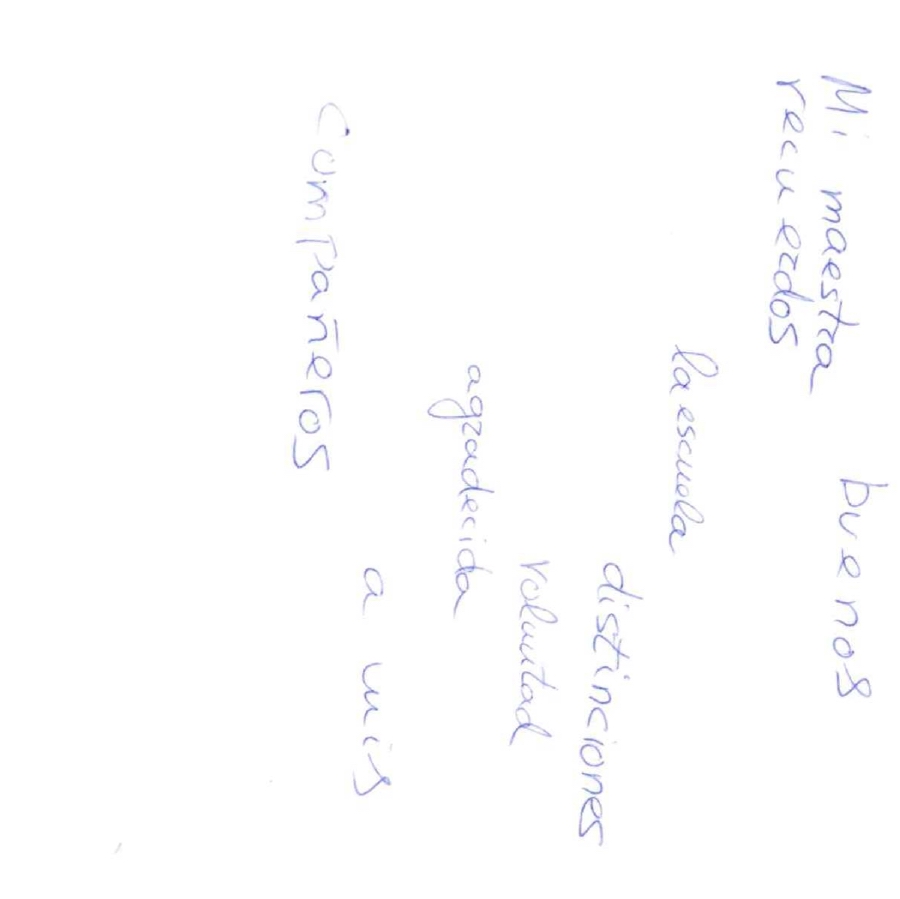 Mi maestra buenos
recuerdos
la escuela
distinciones
voluntad
agradecida
a mis
compañeros